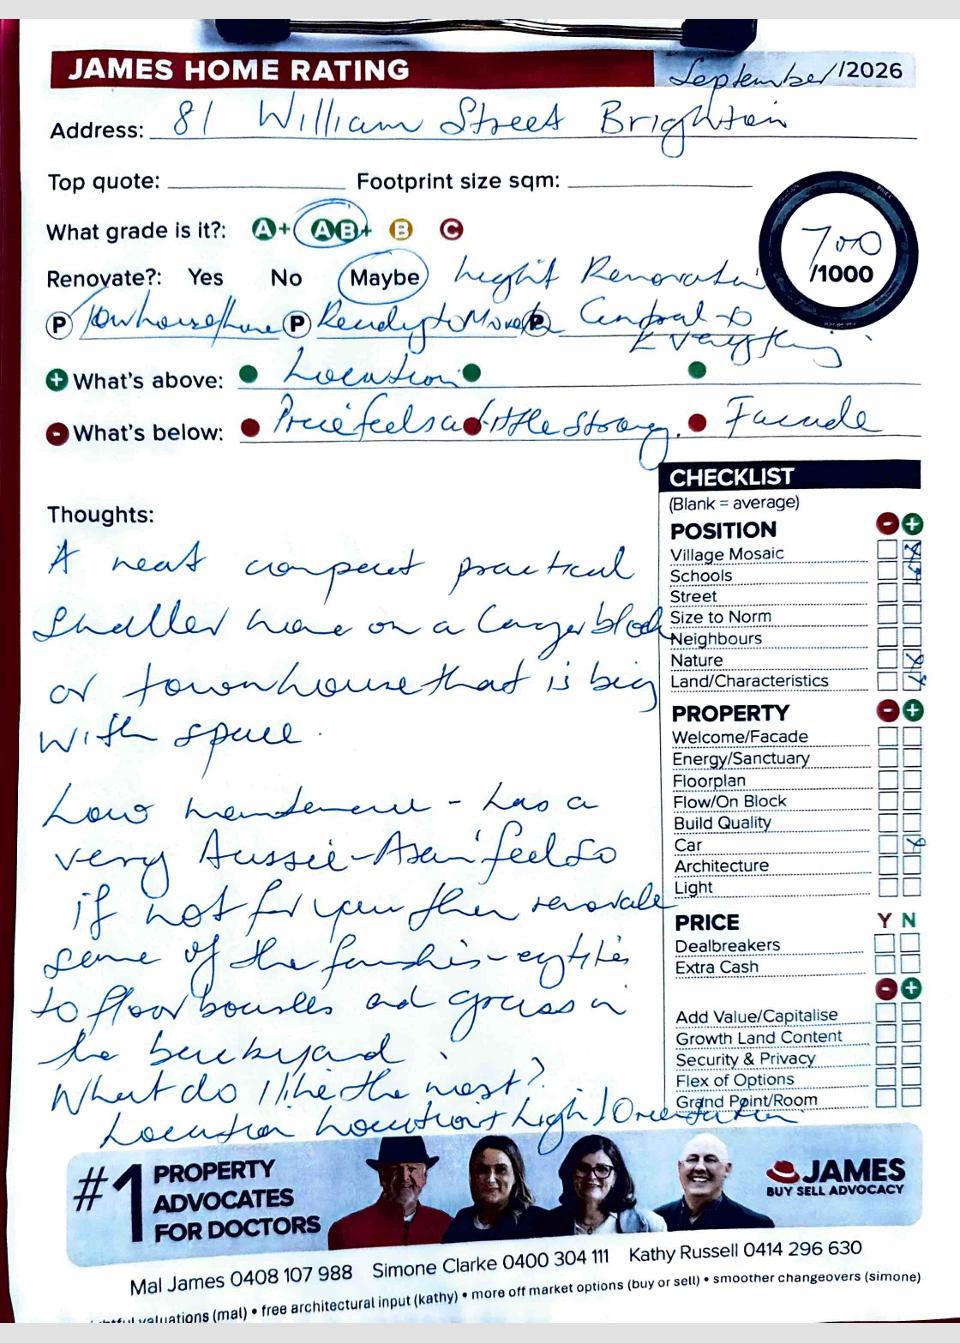 JAMES HOME RATING
September /2026
Address: 81 William Street Brighton
Top quote: Footprint size sqm:
What grade is it?: A+ AB+ B C
700
/1000
Renovate?: Yes No Maybe Light Renovation
P Townhouse/home P Ready to Move P Central to
Everything.
+ What's above: Location
- What's below: Price feels a little strong. Facade
Thoughts:
A neat compact practical
smaller home on a larger block
or townhouse that is big
with space.
Low maintenance - has a
very Aussie-Asian feel so
if not for you then renovate
some of the
to floor boards and grass in
the backyard.
What do I like the most?
Location Location Light/Orientation
CHECKLIST
(Blank = average)
POSITION - +
Village Mosaic
Schools
Street
Size to Norm
Neighbours
Nature
Land/Characteristics
PROPERTY - +
Welcome/Facade
Energy/Sanctuary
Floorplan
Flow/On Block
Build Quality
Car
Architecture
Light
PRICE Y N
Dealbreakers
Extra Cash
- +
Add Value/Capitalise
Growth Land Content
Security & Privacy
Flex of Options
Grand Point/Room
#1 PROPERTY
ADVOCATES
FOR DOCTORS
JAMES
BUY SELL ADVOCACY
Mal James 0408 107 988 Simone Clarke 0400 304 111 Kathy Russell 0414 296 630
valuations (mal) • free architectural input (kathy) • more off market options (buy or sell) • smoother changeovers (simone)